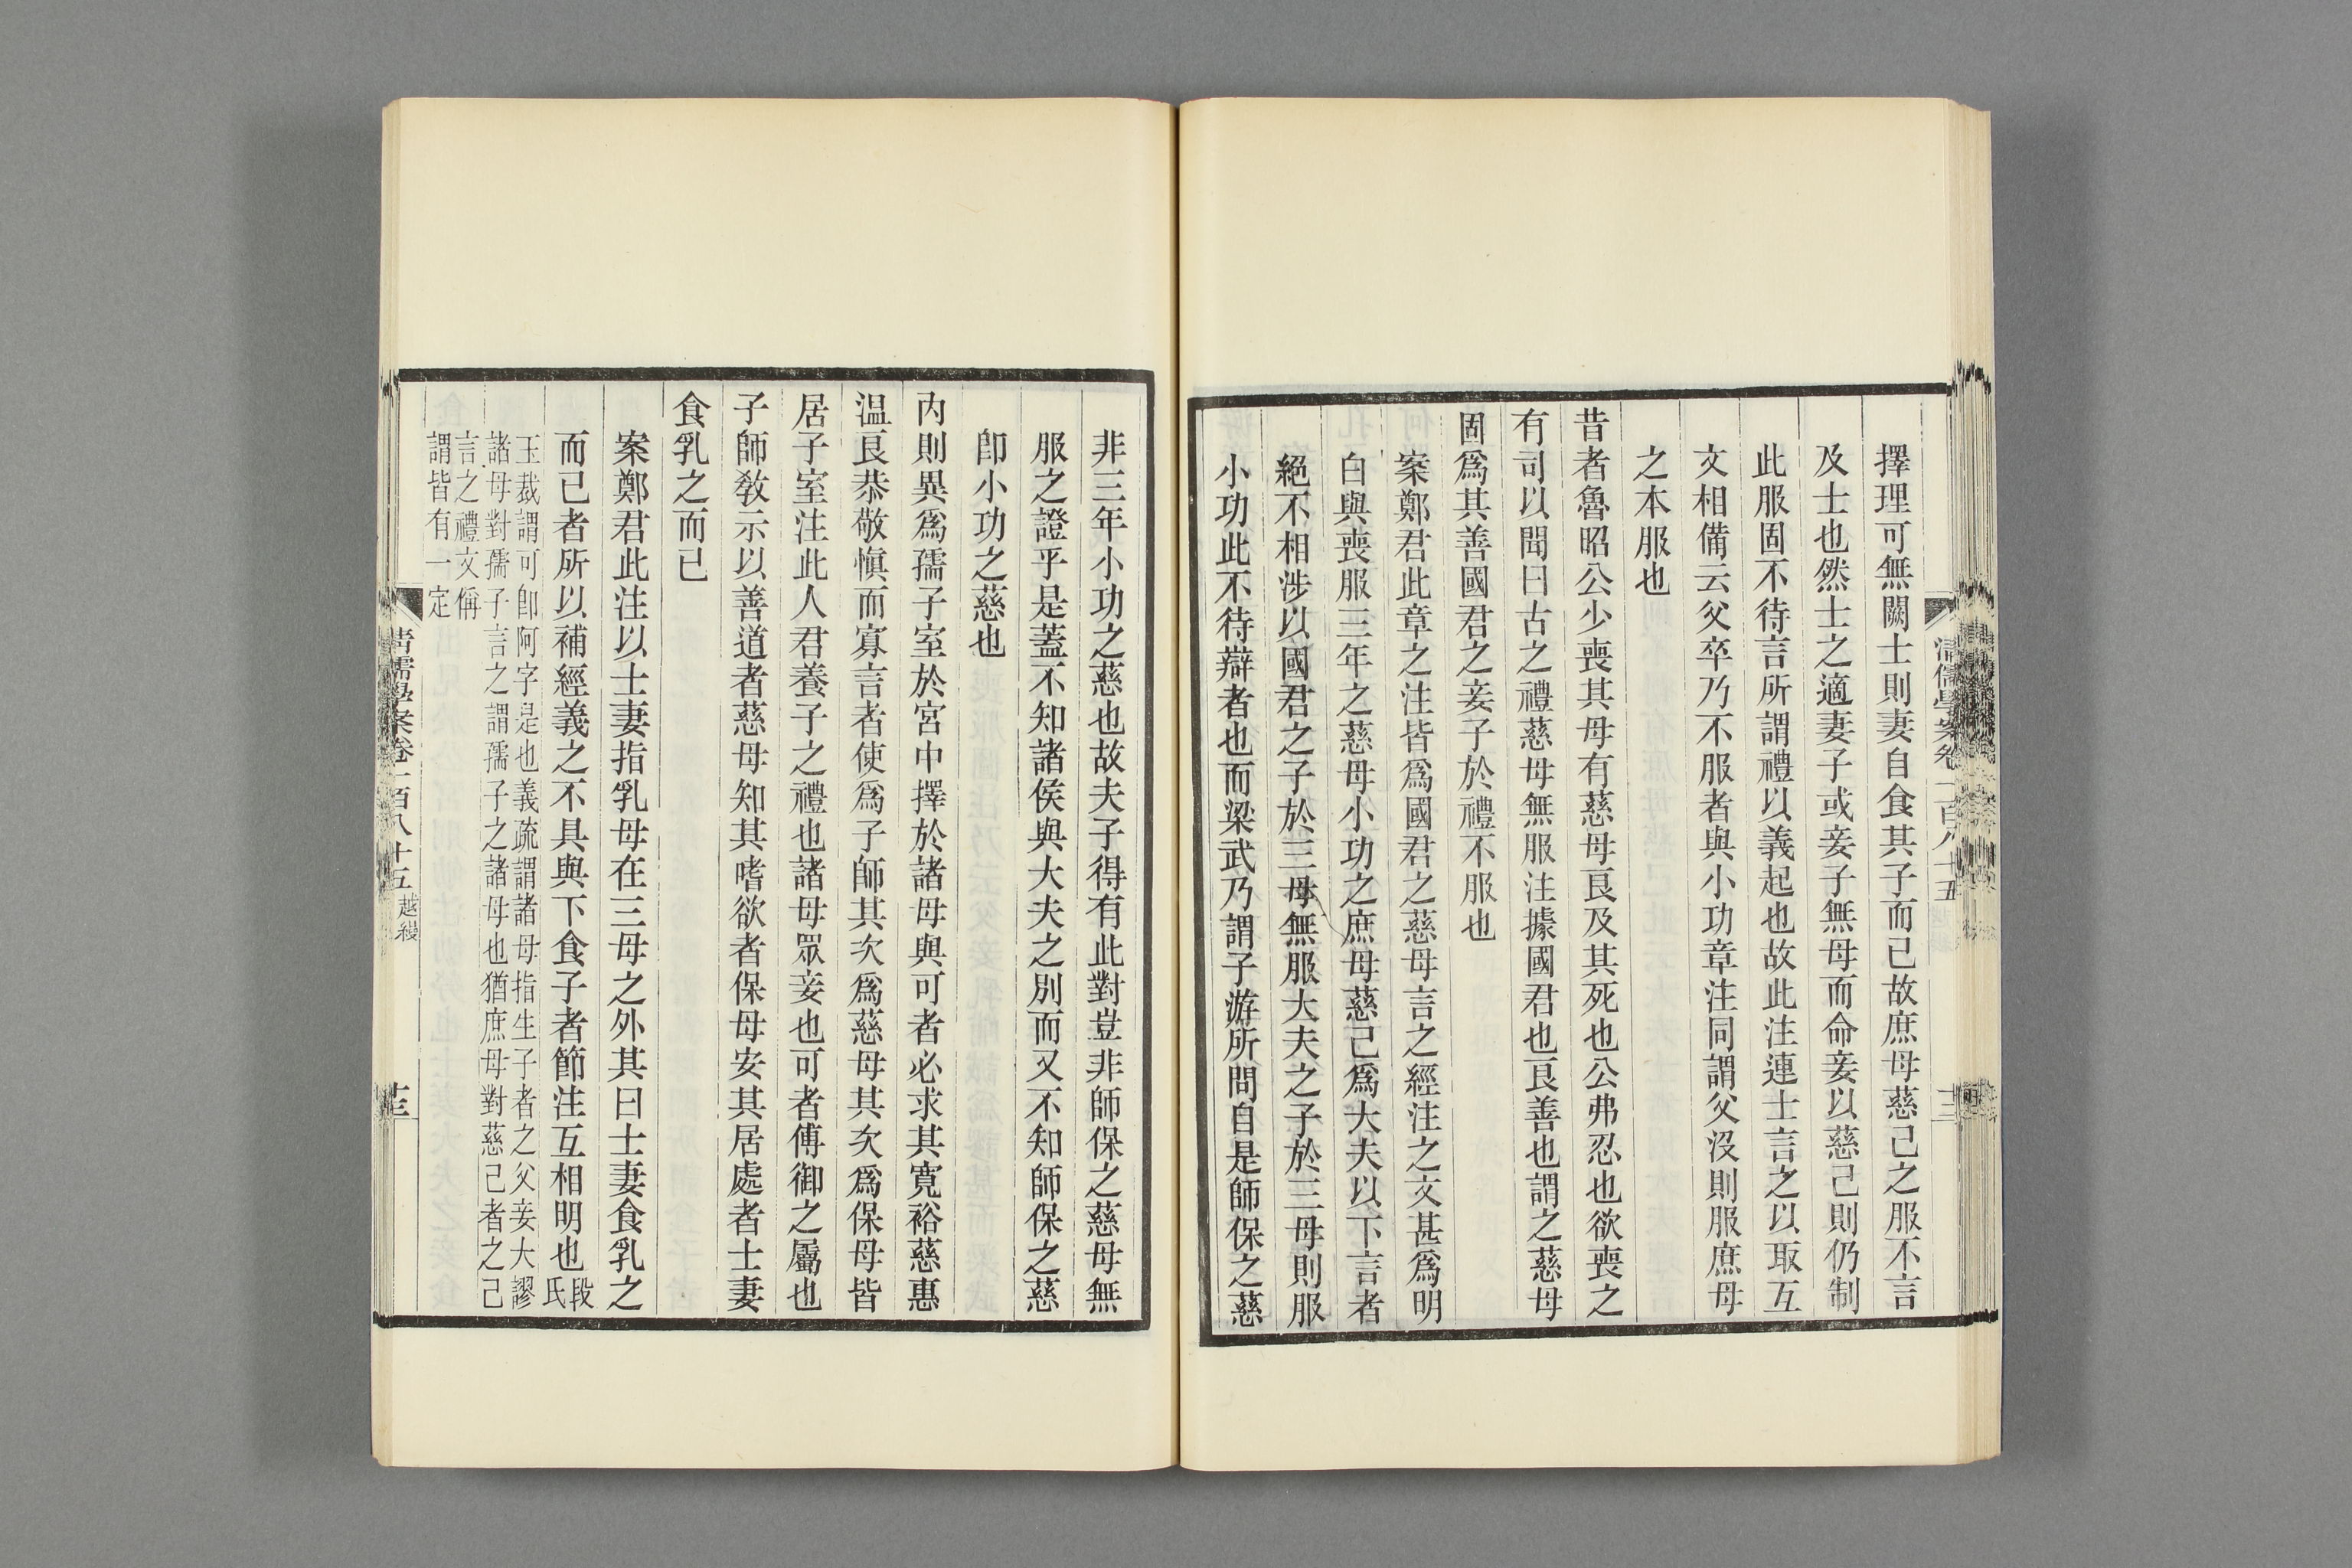 擇理可無闕士則妻自食其子而已故庶母慈己之服不言
及士也然士之適妻子或妾子無母而命妾以慈己則仍制
此服固不待言所謂禮以義起也故此注連士言之以取互
文相備云父卒乃不服者與小功章注同謂父沒則服庶母
之本服也
昔者魯昭公少喪其母有慈母良及其死也公弗忍也欲喪之
有司以聞曰古之禮慈母無服注據國君也良善也謂之慈母
固爲其善國君之妾子於禮不服也
案鄭君此章之注皆爲國君之慈母言之經注之文甚爲明
白與喪服三年之慈母小功之庶母慈己爲大夫以下言者
絕不相涉以國君之子於三母無服大夫之子於三母則服
小功此不待辯者也而梁武乃謂子游所問自是師保之慈
非三年小功之慈也故夫子得有此對豈非師保之慈母無
服之證乎是蓋不知諸侯與大夫之別而又不知師保之慈
卽小功之慈也
內則異爲孺子室於宮中擇於諸母與可者必求其寬裕慈惠
温良恭敬愼而寡言者使爲子師其次爲慈母其次爲保母皆
居子室注此人君養子之禮也諸母眾妾也可者傅御之屬也
子師敎示以善道者慈母知其嗜欲者保母安其居處者士妻
食乳之而已
案鄭君此注以士妻指乳母在三母之外其曰士妻食乳之
而已者所以補經義之不具與下食子者節注互相明也段氏
玉裁謂可卽阿字是也義疏謂諸母指生子者之父妾大謬
諸母對孺子言之謂孺子之諸母也猶庶母對慈己者之己
言之禮文稱
謂皆有一定
清儒學案卷一百八十五 越縵